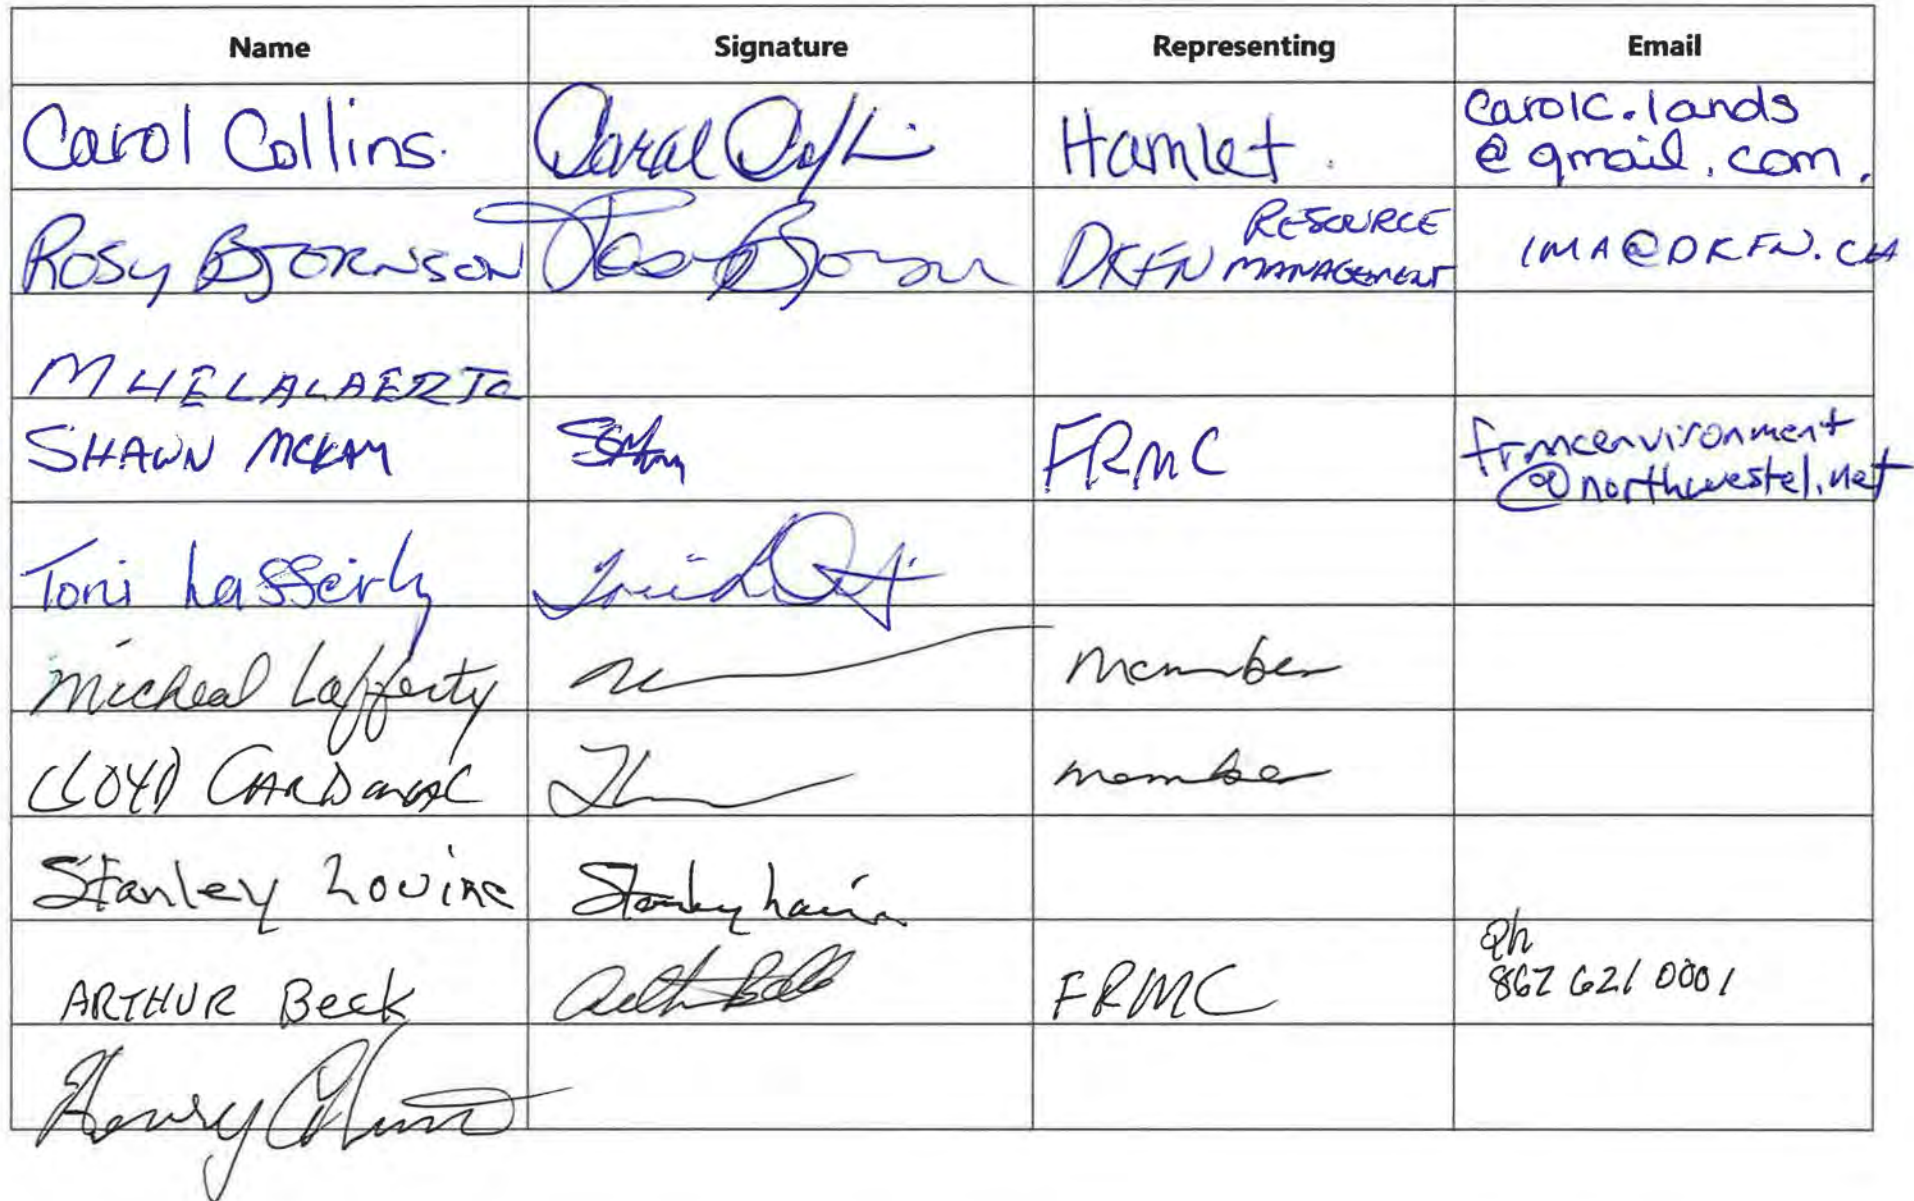 Name Signature Representing Email
Carol Collins. Carol Collins Hamlet. carolc.lands
@gmail.com.
Rosy BJORNSON DKFN RESOURCE
MANAGEMENT IMA@DKFN.CA
SHAWN MCKAY FRMC frmcenvironment
@northwestel.net
Toni
Micheal Lafferty member
LLOYD CARDINAL member
Stanley Louine Stanley
ARTHUR Beck Arthur Beck FRMC Ph
867 621 0001
Henry